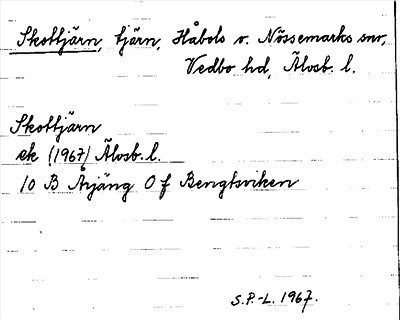 Skottjärn, tjärn, Håbols o. Nössemarks snr,
Vedbo hd, Älvsb. l.
Skottjärn
ek (1967) Älvsb. l.
10 B Årjäng 0 f Bengtsviken
S.P.-L. 1967.